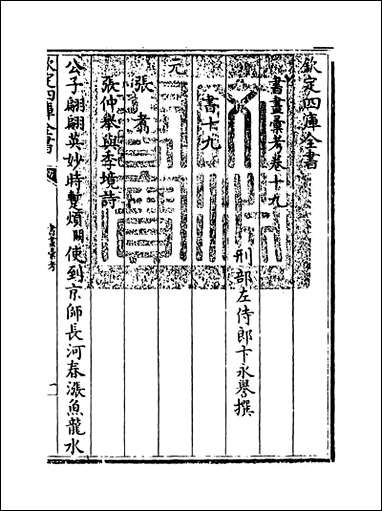 欽定四庫全書
書畫彙考卷十九
刑部左侍郎卞永譽撰
書十九
元
張翥
張仲舉與季境詩
公子翩翩英妙時暫煩開使到京師長河春漲魚龍水
欽定四庫全書
書畫彙考
一